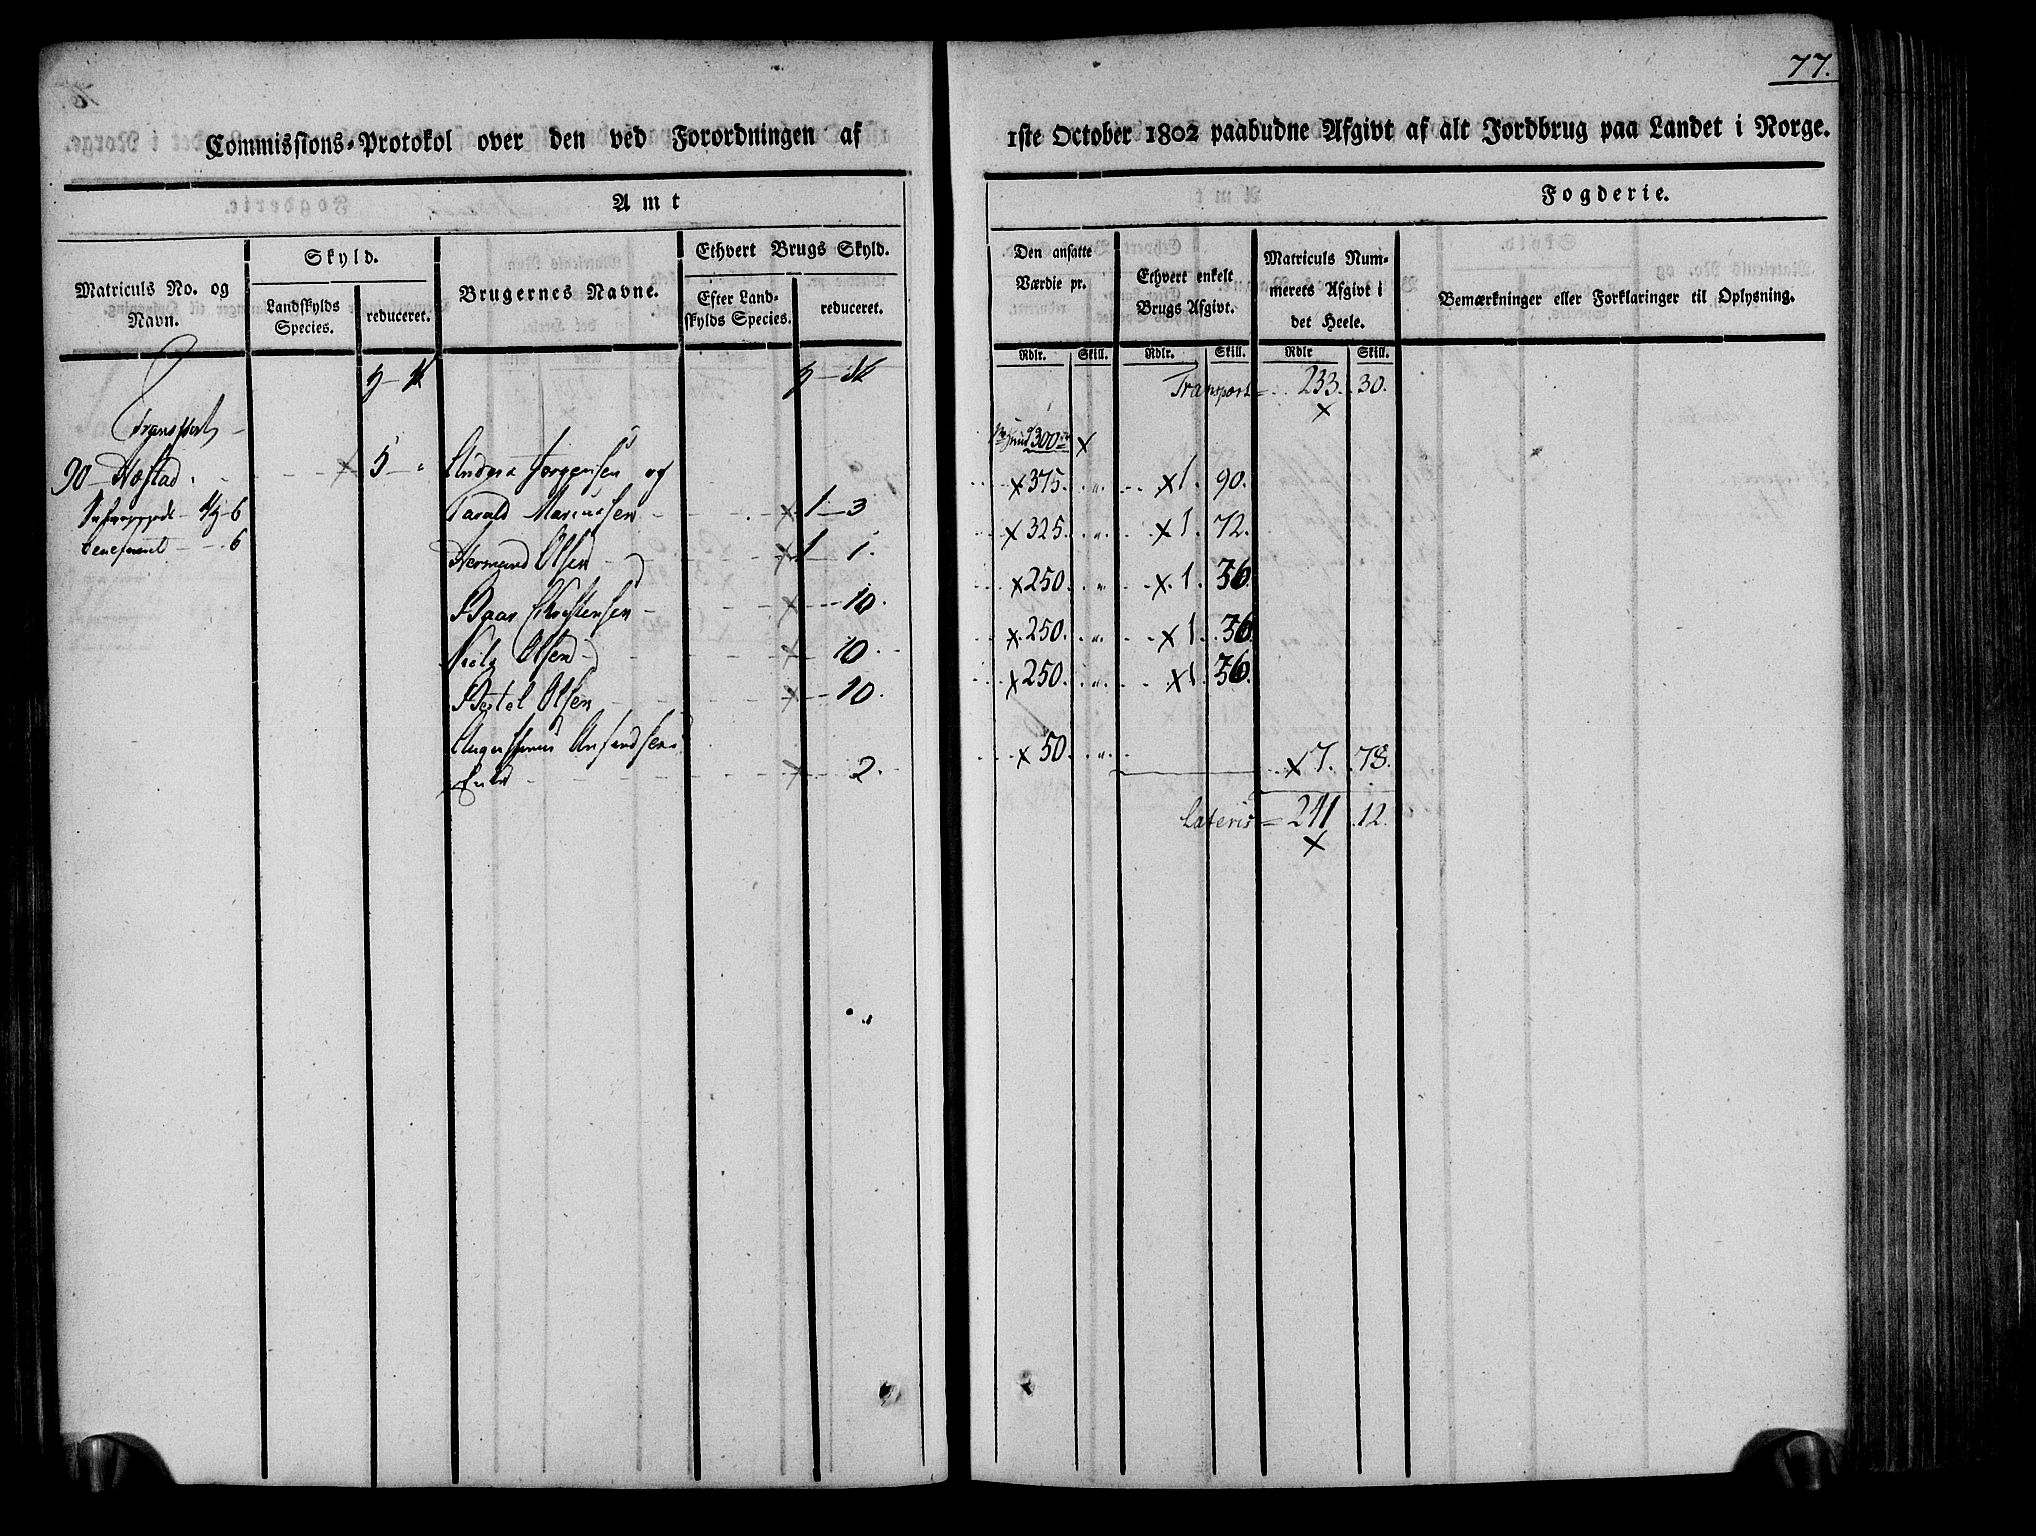 77.
Commissions-Protokol over den ved Forordningen af 1ste October 1802 paabudne Afgivt af alt Jordbrug paa Landet i Norge.
Amt Fogderie.
Matriculs No. og Navn.
Skyld.
Landskylds Species.
reduceret.
Brugernes Navne.
Ethvert Brugs Skyld.
Efter Landskylds Species.
reduceret.
Den ansatte Værdie pr.
Ethvert enkelt Brugs Afgivt.
Matriculs Nummerets Afgivt i det Heele.
Bemærkninger eller Forklaringer til Oplysning.
Rdlr. Skill. Rdlr. Skill. Rdlr Skill.
Transport = 233. 30.
Transport
300
5 Anders Jørgensen og 375. 1. 90.
Tarald 1 3 325. 1. 72.
Hermand Olsen 1 1. 250. 1. 36
Christensen 10. 250. 1. 36
Niels Olsen 10. 250. 1 36
Bertel Olsen 10.
50.
Enke 2. 7. 78.
Lateris = 241. 12.